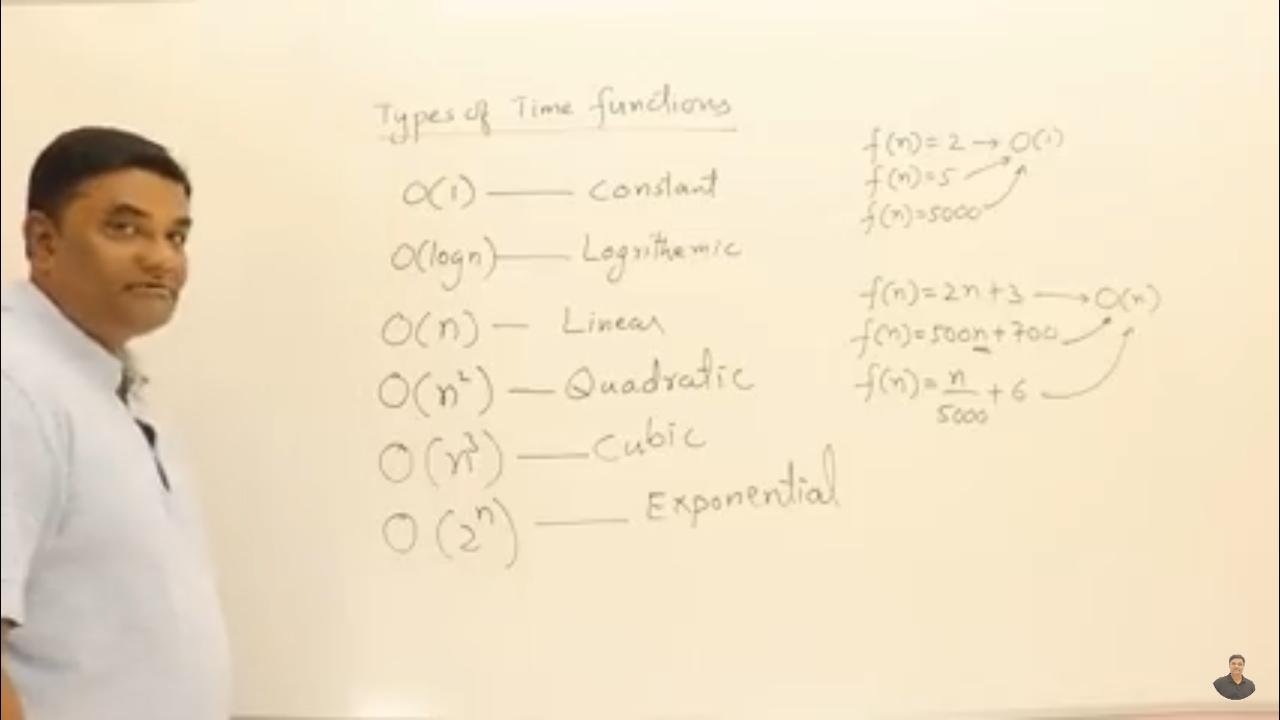 Types of Time functions
O(1) —— Constant
O(logn) —— Logrithemic
O(n) — Linear
O(n²) — Quadratic
O(n³) —— Cubic
O(2ⁿ) —— Exponential
f(n)=2 → O(1)
f(n)=5
f(n)=5000
f(n)=2n+3 → O(n)
f(n)=500n+700
f(n)=n/5000 +6